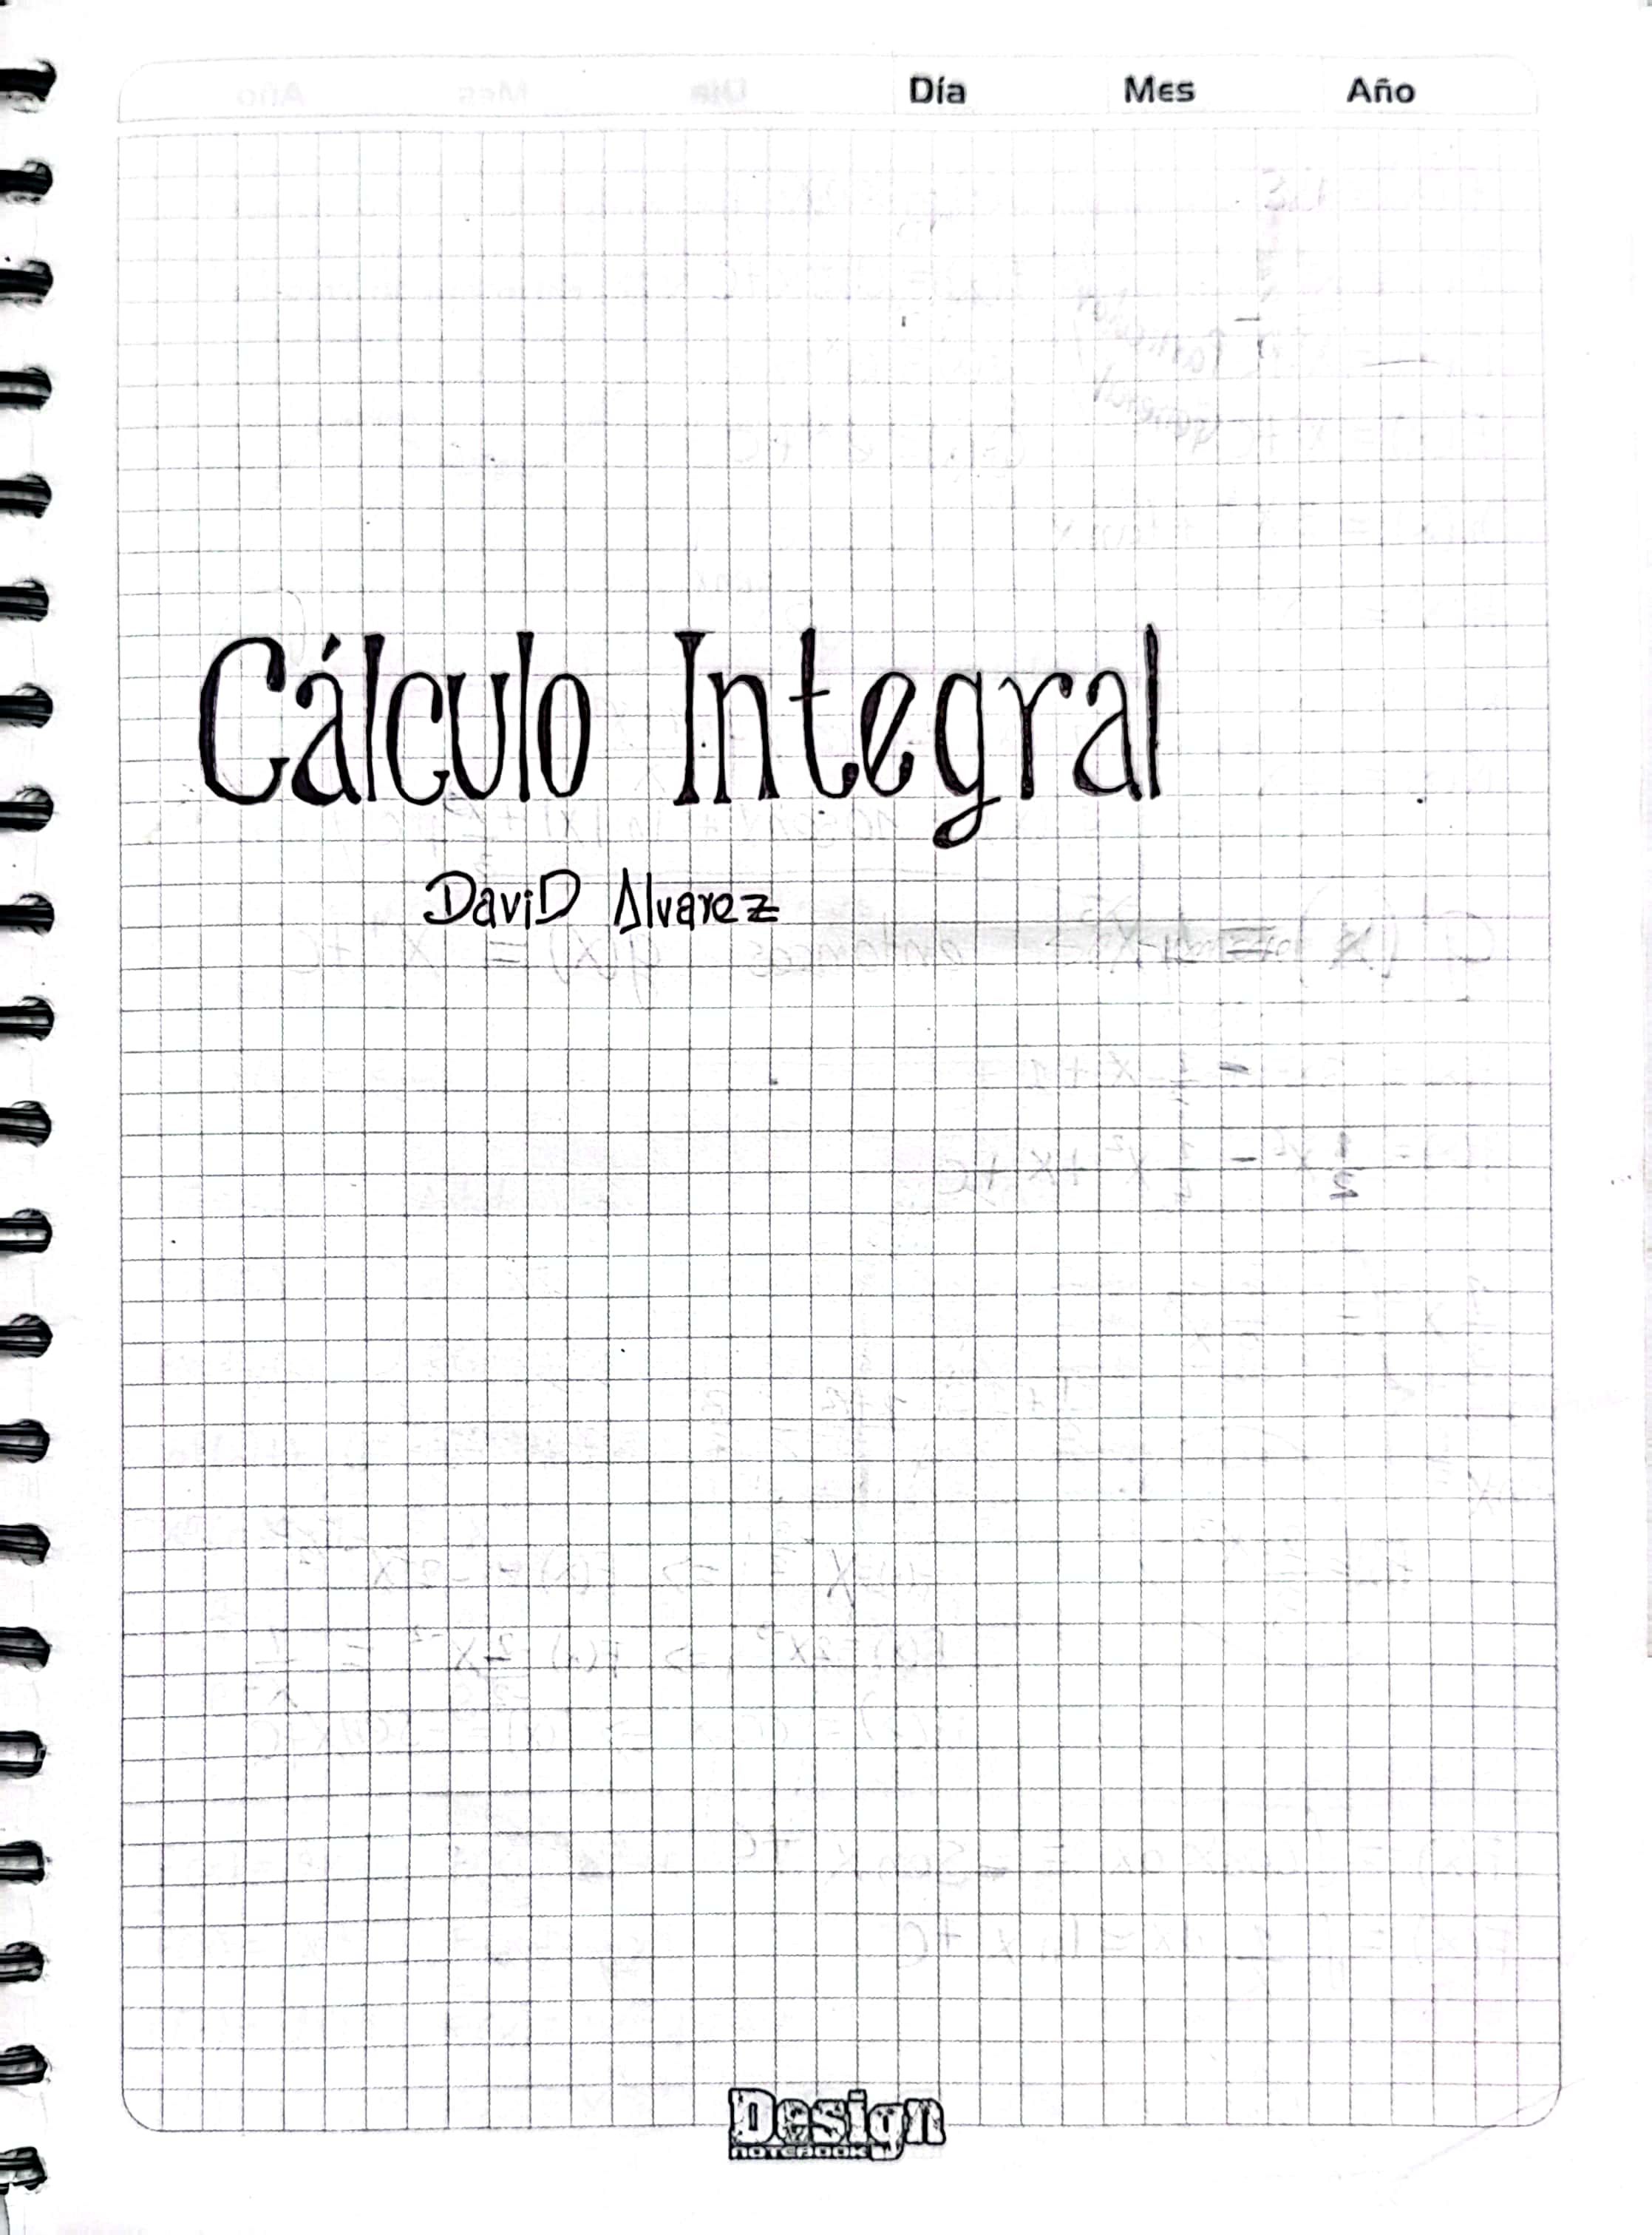 Día Mes Año
Cálculo Integral
DaviD Alvarez
Design
NOTEBOOK